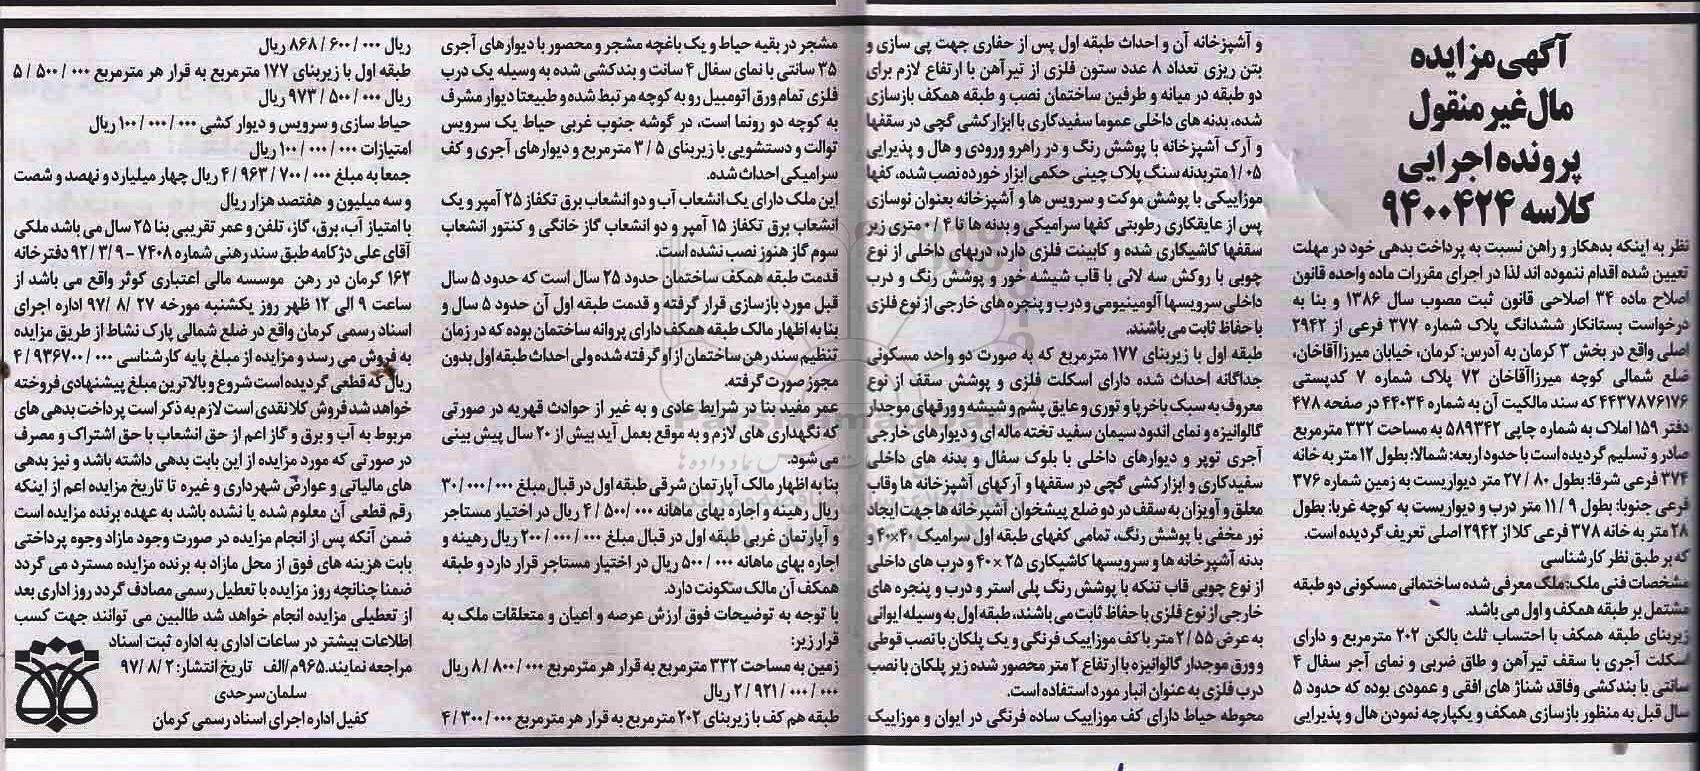 آگهی مزایده
مال غیر منقول
پرونده اجرایی
کلاسه ۹۴۰۰۴۲۴
نظر به اینکه بدهکار و راهن نسبت به پرداخت بدهی خود در مهلت
تعیین شده اقدام ننموده اند لذا در اجرای مقررات ماده واحده قانون
اصلاح ماده ۳۴ اصلاحی قانون ثبت مصوب سال ۱۳۸۶ و بنا به
درخواست بستانکار ششدانگ پلاک شماره ۳۷۷ فرعی از ۲۹۴۲
اصلی واقع در بخش ۳ کرمان به آدرس: کرمان، خیابان میرزاآقاخان،
ضلع شمالی کوچه میرزاآقاخان ۷۲ پلاک شماره ۷ کدپستی
۴۴۳۷۸۷۶۱۷۶ که سند مالکیت آن به شماره ۴۴۰۳۴ در صفحه ۴۷۸
دفتر ۱۵۹ املاک به شماره چاپی ۵۸۹۳۴۲ به مساحت ۳۳۲ مترمربع
صادر و تسلیم گردیده است با حدود اربعه: شمالا: بطول ۱۲ متر به خانه
۳۷۴ فرعی شرقا: بطول ۸۰ / ۲۷ متر دیواریست به زمین شماره ۳۷۶
فرعی جنوبا: بطول ۹ / ۱۱ متر درب و دیواریست به کوچه غربا: بطول
۲۸ متر به خانه ۳۷۸ فرعی کلا از ۲۹۴۲ اصلی تعریف گردیده است.
که بر طبق نظر کارشناسی
مشخصات فنی ملک: ملک معرفی شده ساختمانی مسکونی دو طبقه
مشتمل بر طبقه همکف و اول می باشد.
زیربنای طبقه همکف با احتساب ثلث بالکن ۲۰۲ مترمربع و دارای
اسکلت آجری با سقف تیرآهن و طاق ضربی و نمای آجر سفال ۴
سانتی با بندکشی وفاقد شناژ های افقی و عمودی بوده که حدود ۵
سال قبل به منظور بازسازی همکف و یکپارچه نمودن هال و پذیرایی
و آشپزخانه آن و احداث طبقه اول پس از حفاری جهت پی سازی و
بتن ریزی تعداد ۸ عدد ستون فلزی از تیرآهن با ارتفاع لازم برای
دو طبقه در میانه و طرفین ساختمان نصب و طبقه همکف بازسازی
شده، بدنه های داخلی عموما سفیدکاری با ابزارکشی گچی در سقفها
و آرک آشپزخانه با پوشش رنگ و در راهرو ورودی و هال و پذیرایی
۱/۰۵ متر بدنه سنگ پلاک چینی حکمی ابزار خورده نصب شده، کفها
موزاییکی با پوشش موکت و سرویس ها و آشپزخانه بعنوان نوسازی
پس از عایقکاری رطوبتی کفها سرامیکی و بدنه ها تا ۴ / ۰ متری زیر
سقفها کاشیکاری شده و کابینت فلزی دارد، دربهای داخلی از نوع
چوبی با روکش سه لائی با قاب شیشه خور و پوشش رنگ و درب
داخلی سرویسها آلومینیومی و درب و پنجره های خارجی از نوع فلزی
با حفاظ ثابت می باشند.
طبقه اول با زیربنای ۱۷۷ مترمربع که به صورت دو واحد مسکونی
جداگانه احداث شده دارای اسکلت فلزی و پوشش سقف از نوع
معروف به سبک باخرپا و توری و عایق پشم و شیشه و ورقهای موجدار
گالوانیزه و نمای اندود سیمان سفید تخته ماله ای و دیوارهای خارجی
آجری توپر و دیوارهای داخلی با بلوک سفال و بدنه های داخلی
سفیدکاری و ابزارکشی گچی در سقفها و آرکهای آشپزخانه ها وقاب
معلق و آویزان به سقف در دو ضلع پیشخوان آشپزخانه ها جهت ایجاد
نور مخفی با پوشش رنگ، تمامی کفهای طبقه اول سرامیک ۴۰×۴۰ و
بدنه آشپزخانه ها و سرویسها کاشیکاری ۲۵ ×۴۰ و درب های داخلی
از نوع چوبی قاب تنکه با پوشش رنگ پلی استر و درب و پنجره های
خارجی از نوع فلزی با حفاظ ثابت می باشند، طبقه اول به وسیله ایوانی
به عرض ۵۵ / ۲ متر با کف موزاییک فرنگی و یک پلکان با نصب قوطی
و ورق موجدار گالوانیزه با ارتفاع ۲ متر محصور شده زیر پلکان با نصب
درب فلزی به عنوان انبار مورد استفاده است.
محوطه حیاط دارای کف موزاییک ساده فرنگی در ایوان و موزاییک
مشجر در بقیه حیاط و یک باغچه مشجر و محصور با دیوارهای آجری
۳۵ سانتی با نمای سفال ۴ سانت و بندکشی شده به وسیله یک درب
فلزی تمام ورق اتومبیل رو به کوچه مرتبط شده و طبیعتا دیوار مشرف
به کوچه دو رونما است، در گوشه جنوب غربی حیاط یک سرویس
توالت و دستشویی با زیربنای ۵ / ۳ مترمربع و دیوارهای آجری و کف
سرامیکی احداث شده.
این ملک دارای یک انشعاب آب و دو انشعاب برق تکفاز ۲۵ آمپر و یک
انشعاب برق تکفاز ۱۵ آمپر و دو انشعاب گاز خانگی و کنتور انشعاب
سوم گاز هنوز نصب نشده است.
قدمت طبقه همکف ساختمان حدود ۲۵ سال است که حدود ۵ سال
قبل مورد بازسازی قرار گرفته و قدمت طبقه اول آن حدود ۵ سال و
بنا به اظهار مالک طبقه همکف دارای پروانه ساختمان بوده که در زمان
تنظیم سند رهن ساختمان از او گرفته شده ولی احداث طبقه اول بدون
مجوز صورت گرفته.
عمر مفید بنا در شرایط عادی و به غیر از حوادث قهریه در صورتی
که نگهداری های لازم و به موقع بعمل آید بیش از ۲۰ سال پیش بینی
می شود.
بنا به اظهار مالک آپارتمان شرقی طبقه اول در قبال مبلغ ۰۰۰/ ۰۰۰/ ۳۰
ریال رهینه و اجاره بهای ماهانه ۰۰۰ /۵۰۰/ ۴ ریال در اختیار مستاجر
و آپارتمان غربی طبقه اول در قبال مبلغ ۰۰۰/ ۰۰۰ /۲۰۰ ریال رهینه و
اجاره بهای ماهانه ۰۰۰ /۵۰۰ ریال در اختیار مستاجر قرار دارد و طبقه
همکف آن مالک سکونت دارد.
با توجه به توضیحات فوق ارزش عرصه و اعیان و متعلقات ملک به
قرار زیر:
زمین به مساحت ۳۳۲ مترمربع به قرار هر مترمربع ۰۰۰ / ۸۰۰ / ۸ ریال
۰۰۰ / ۰۰۰ / ۹۲۱ / ۲ ریال
طبقه هم کف با زیربنای ۲۰۲ مترمربع به قرار هر مترمربع ۰۰۰ / ۳۰۰ / ۴
ریال ۰۰۰ / ۶۰۰ / ۸۶۸ ریال
طبقه اول با زیربنای ۱۷۷ مترمربع به قرار هر مترمربع ۰۰۰ / ۵۰۰ / ۵
ریال ۰۰۰ / ۵۰۰ / ۹۷۳ ریال
حیاط سازی و سرویس و دیوار کشی ۰۰۰ / ۰۰۰ / ۱۰۰ ریال
امتیازات ۰۰۰ / ۰۰۰ / ۱۰۰ ریال
جمعا به مبلغ ۰۰۰ / ۷۰۰ / ۹۶۳ / ۴ ریال چهار میلیارد و نهصد و شصت
و سه میلیون و هفتصد هزار ریال
با امتیاز آب، برق، گاز، تلفن و عمر تقریبی بنا ۲۵ سال می باشد ملکی
آقای علی دژکامه طبق سند رهنی شماره ۷۴۰۸ - ۹ /۳ /۹۲ دفترخانه
۱۶۲ کرمان در رهن موسسه مالی اعتباری کوثر واقع می باشد از
ساعت ۹ الی ۱۲ ظهر روز یکشنبه مورخه ۲۷ /۸ /۹۷ اداره اجرای
اسناد رسمی کرمان واقع در ضلع شمالی پارک نشاط از طریق مزایده
به فروش می رسد و مزایده از مبلغ پایه کارشناسی ۰۰۰ / ۹۳۶۷۰۰ / ۴
ریال که قطعی گردیده است شروع و بالاترین مبلغ پیشنهادی فروخته
خواهد شد فروش کلا نقدی است لازم به ذکر است پرداخت بدهی های
مربوط به آب و برق و گاز اعم از حق انشعاب یا حق اشتراک و مصرف
در صورتی که مورد مزایده از این بابت بدهی داشته باشد و نیز بدهی
های مالیاتی و عوارض شهرداری و غیره تا تاریخ مزایده اعم از اینکه
رقم قطعی آن معلوم شده یا نشده باشد به عهده برنده مزایده است
ضمن آنکه پس از انجام مزایده در صورت وجود مازاد وجوه پرداختی
بابت هزینه های فوق از محل مازاد به برنده مزایده مسترد می گردد
ضمنا چنانچه روز مزایده با تعطیل رسمی مصادف گردد روز اداری بعد
از تعطیلی مزایده انجام خواهد شد طالبین می توانند جهت کسب
اطلاعات بیشتر در ساعات اداری به اداره ثبت اسناد
مراجعه نمایند.۹۶۵م/الف تاریخ انتشار: ۲ /۸ /۹۷
سلمان سرحدی
کفیل اداره اجرای اسناد رسمی کرمان